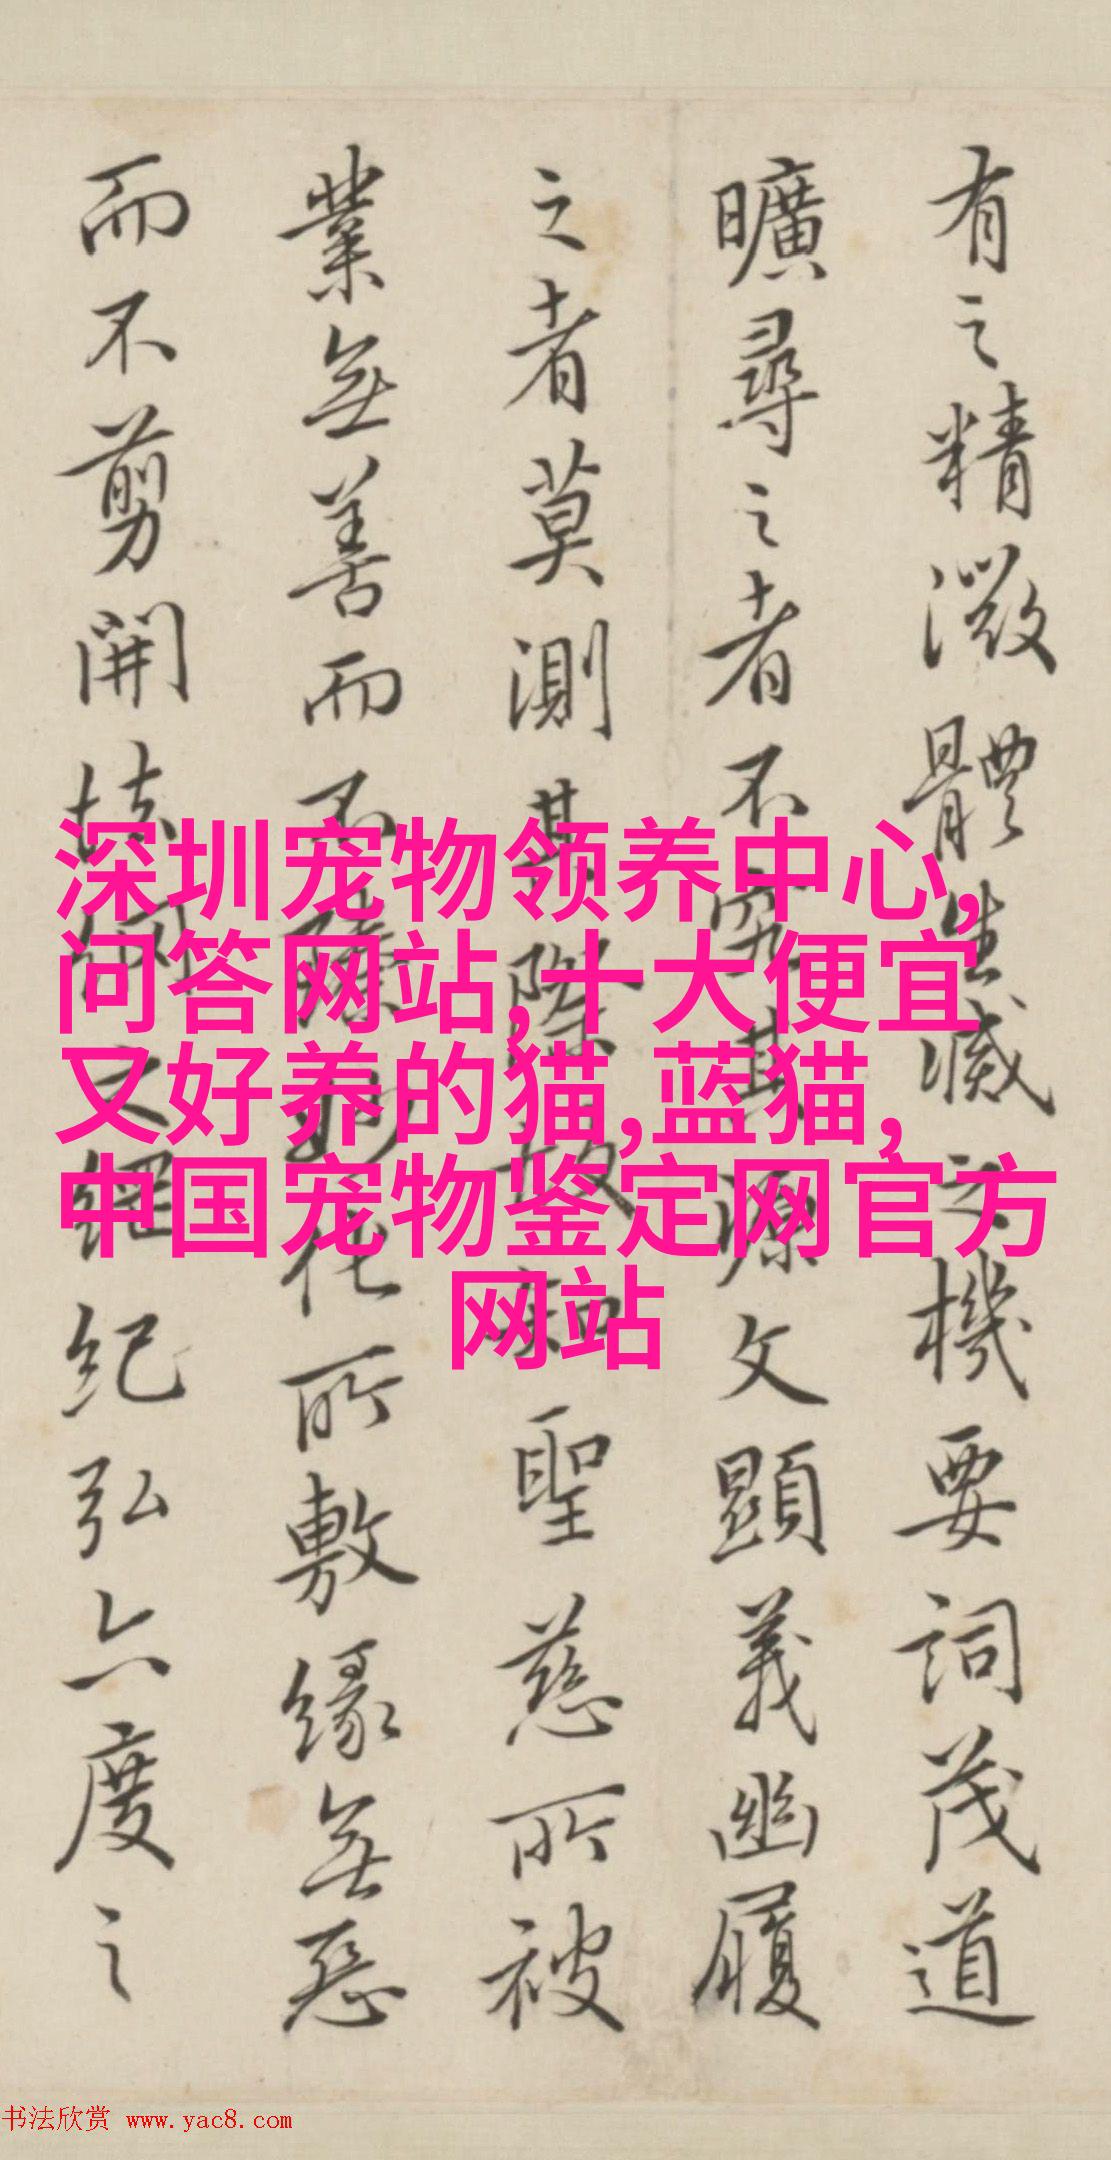 有之精微體生滅之機要詞茂道
曠尋之者不究其源文顯義幽履
之者莫測其際故知聖慈所被
業無善而不臻妙化所敷緣無惡
而不剪開法網之綱紀弘六度之
深圳宠物领养中心,
问答网站,十大便宜
又好养的猫,蓝猫,
中国宠物鉴定网官方
网站
书法欣赏 www.yac8.com